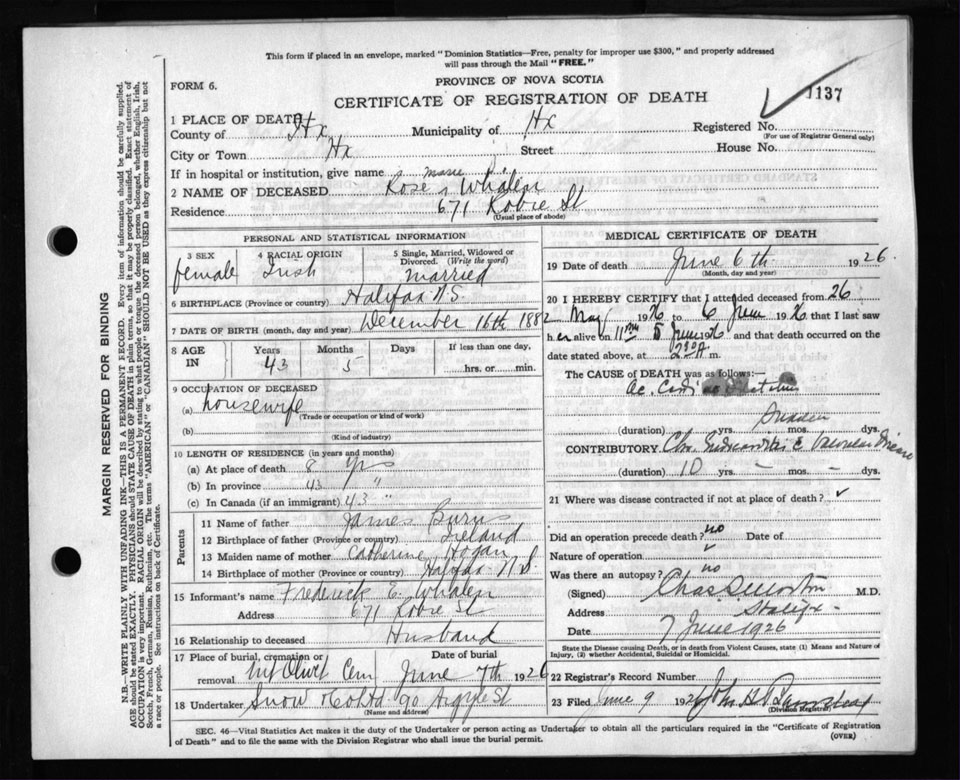 This form if placed in an envelope, marked "Dominion Statistics—Free, penalty for improper use $300," and properly addressed
will pass through the Mail "FREE."
PROVINCE OF NOVA SCOTIA
FORM 6.
CERTIFICATE OF REGISTRATION OF DEATH
1137
1 PLACE OF DEATH
County of Hx Municipality of Hx Registered No.
(For use of Registrar General only)
City or Town Hx Street House No.
If in hospital or institution, give name
Marie
2 NAME OF DECEASED Rose Whalen
Residence 671 Robie St
(Usual place of abode)
PERSONAL AND STATISTICAL INFORMATION
3 SEX 4 RACIAL ORIGIN 5 Single, Married, Widowed or Divorced. (Write the word)
female Irish married
6 BIRTHPLACE (Province or country) Halifax N.S.
7 DATE OF BIRTH (month, day and year) December 16th 1882
8 AGE IN Years Months Days If less than one day,
43 5 hrs. or min.
9 OCCUPATION OF DECEASED
(a) housewife
(Trade or occupation or kind of work)
(b)
(Kind of industry)
10 LENGTH OF RESIDENCE (in years and months)
(a) At place of death 8 yrs
(b) In province 43 "
(c) In Canada (if an immigrant) 43 "
Parents
11 Name of father James Burns
12 Birthplace of father (Province or country) Ireland
13 Maiden name of mother Catherine Hogan
14 Birthplace of mother (Province or country) Halifax N.S.
15 Informant's name Frederick E. Whalen
Address 671 Robie St
16 Relationship to deceased Husband
17 Place of burial, cremation or removal Mt Olivet Cem Date of burial June 7th 1926
18 Undertaker Snow & Co Ltd 90 Argyle St
(Name and address)
MEDICAL CERTIFICATE OF DEATH
19 Date of death June 6th 1926.
(Month, day and year)
20 I HEREBY CERTIFY that I attended deceased from 26
May 1926 to 6 June 1926 that I last saw
her alive on 5 June 1926 and that death occurred on the
date stated above, at 230 A m.
The CAUSE OF DEATH was as follows:
Ac. Cardiac
Sudden
(duration) yrs. mos. dys.
CONTRIBUTORY Chr. Valvular Disease
(duration) 10 yrs. - mos. - dys.
21 Where was disease contracted if not at place of death?
Did an operation precede death? no Date of
Nature of operation
Was there an autopsy? no
(Signed) Chas. S. Morton M.D.
Address Halifax
Date 7 June 1926
State the Disease causing Death, or in death from Violent Causes, state (1) Means and Nature of
Injury, (2) whether Accidental, Suicidal or Homicidal.
22 Registrar's Record No.
23 Filed June 9 1926 John
(Division Registrar)
SEC. 46—Vital Statistics Act makes it the duty of the Undertaker or person acting as Undertaker to obtain all the particulars required in the "Certificate of Registration
of Death" and to file the same with the Division Registrar who shall issue the burial permit. (OVER)
MARGIN RESERVED FOR BINDING
N.B.—WRITE PLAINLY WITH UNFADING INK—THIS IS A PERMANENT RECORD. Every item of information should be carefully supplied.
AGE should be stated EXACTLY. PHYSICIANS should STATE CAUSE OF DEATH in plain terms, so that it may be properly classified. Exact statement of
OCCUPATION is very important. RACIAL ORIGIN will be described by stating to what people or tongue the deceased person belonged, whether English, Irish,
Scotch, French, German, Russian, Ruthenian, etc. The terms "AMERICAN" or "CANADIAN" SHOULD NOT BE USED as they express citizenship but not
a race or people. See instructions on back of Certificate.